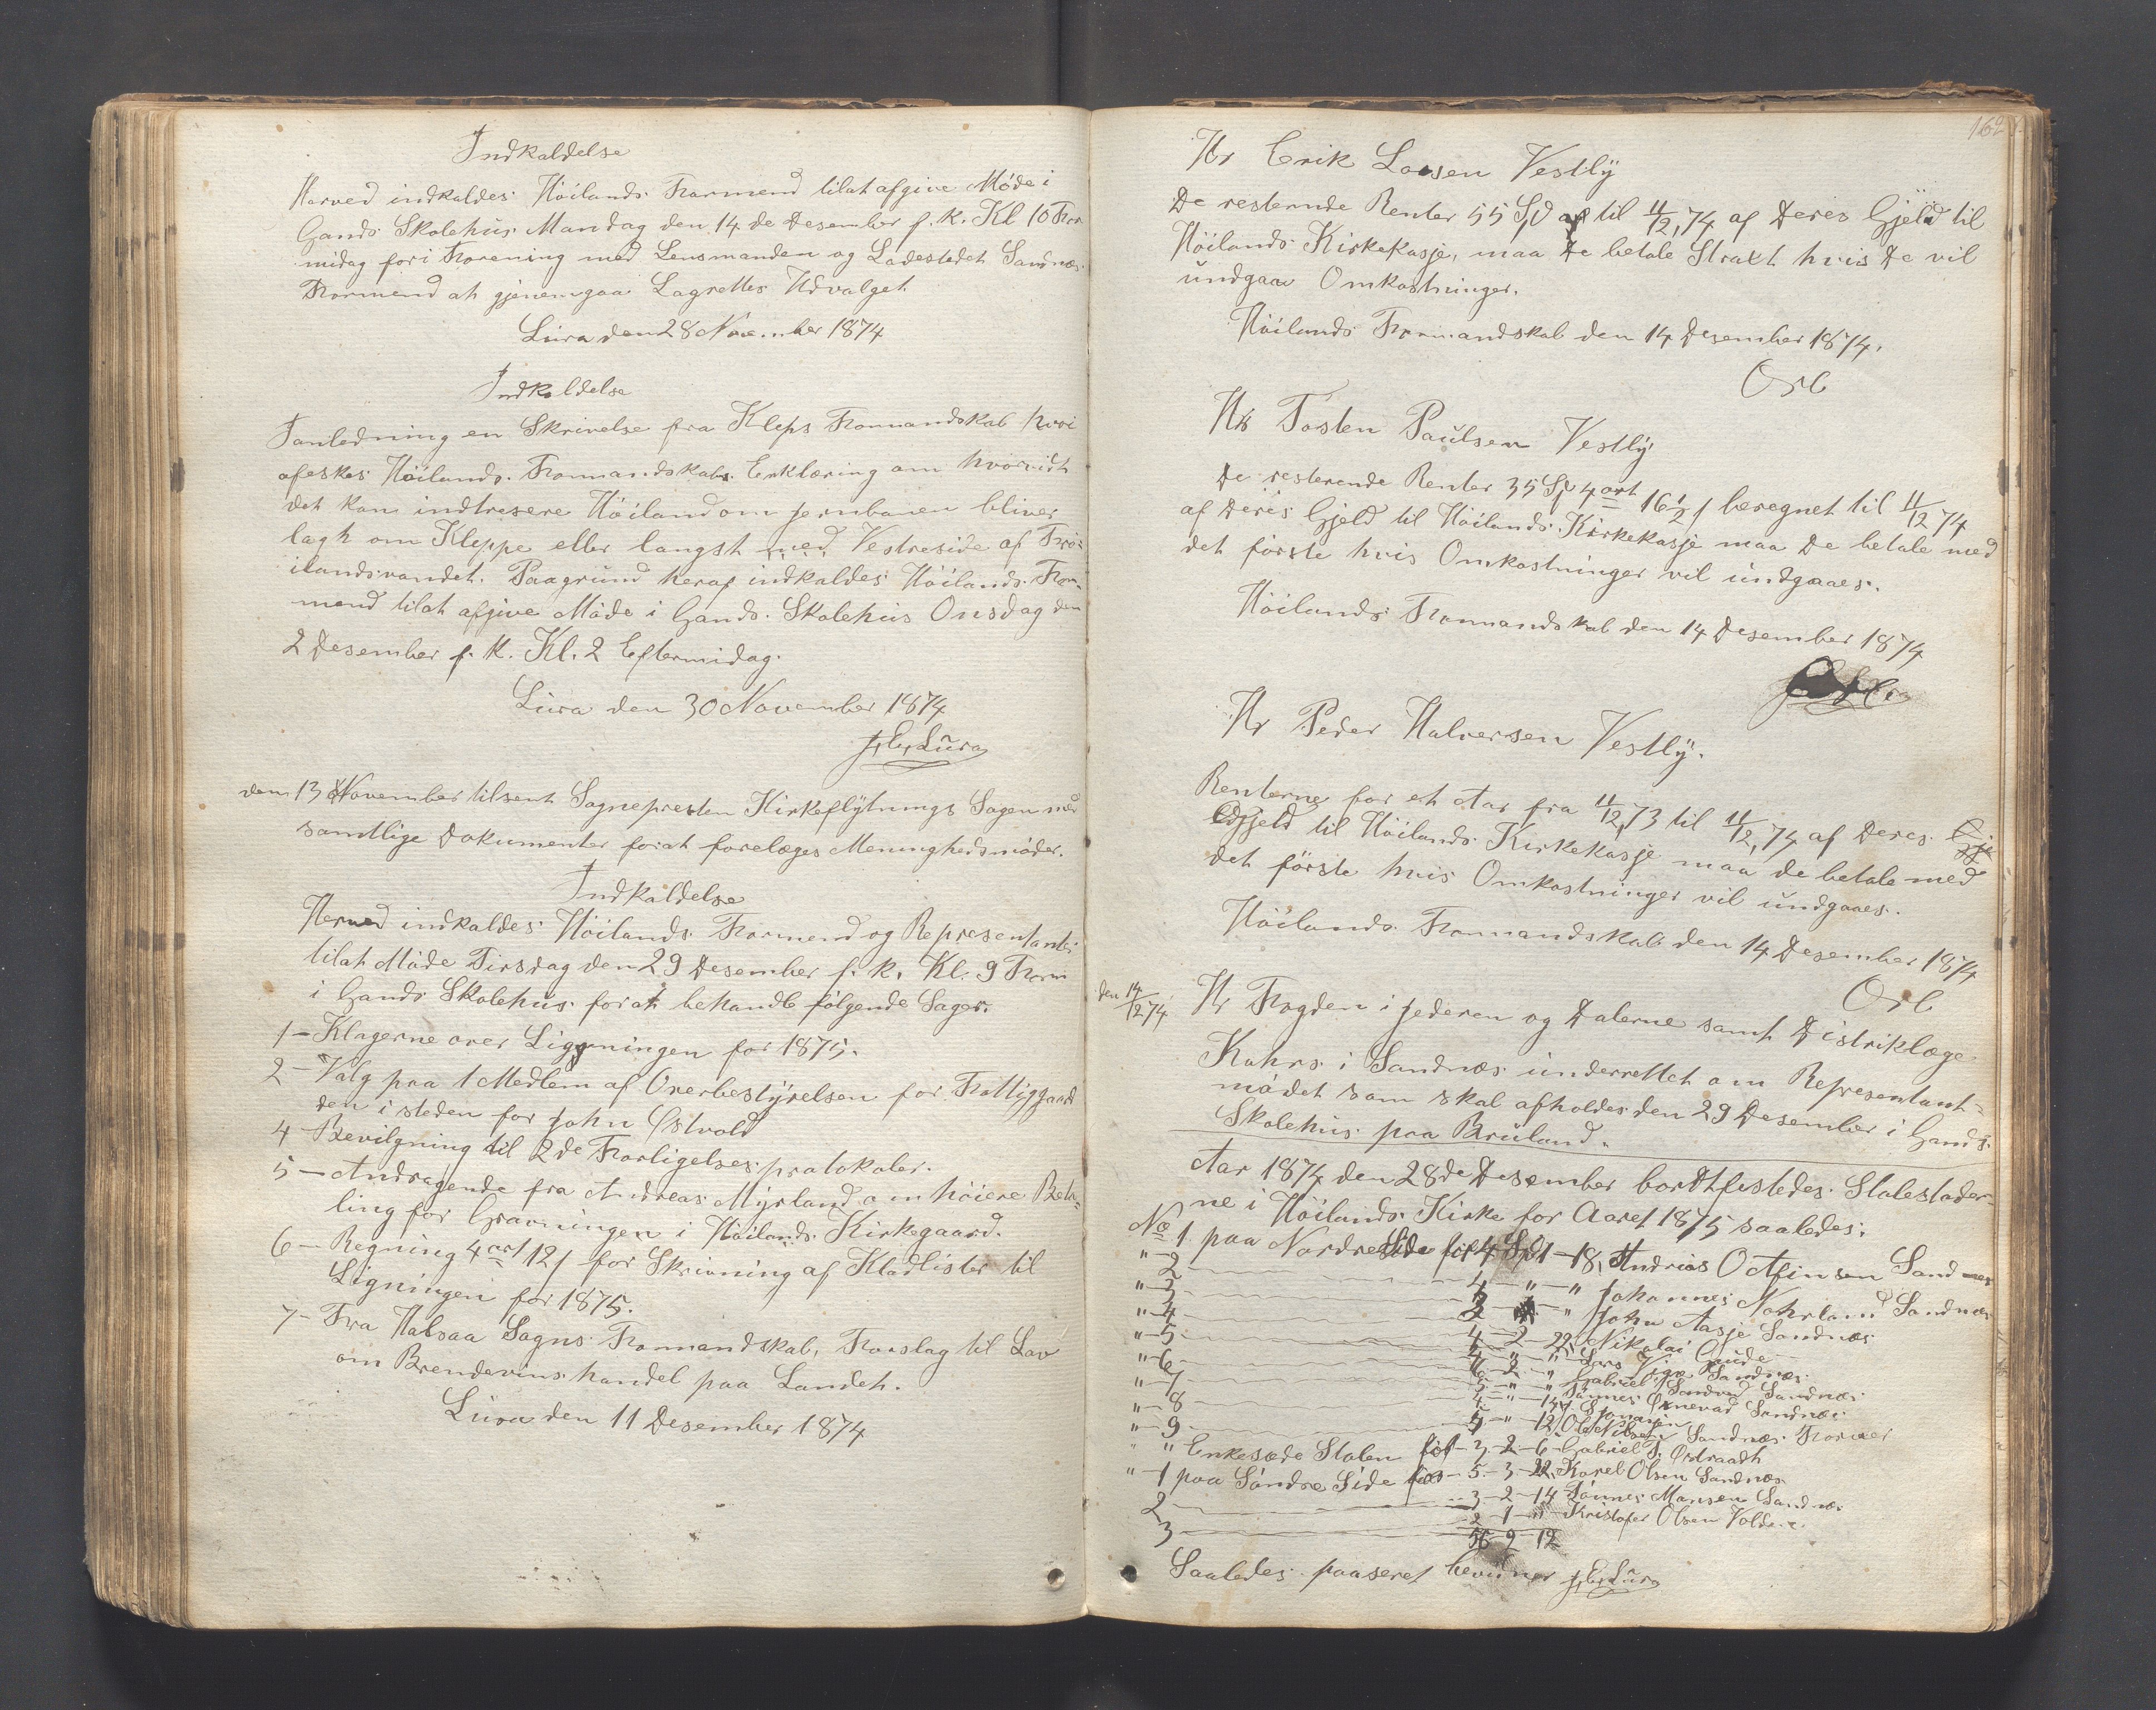 Indkaldelse
Herved indkaldes Höilands Formend tilat afgive Möde i
Gands Skolehus Mandag den 14 de Desember f. k. Kl 10 For
midag fori Forening med Lensmanden og Ladestedet Sandnæs
Formend at gjenemgaa Lagrettes Udvalget
Lura den 28 November 1874
Indkaldelse
Ianledning en Skrivelse fra Kleps Formandskab hvori
afeskes Höilands Formandskabs Erklæring om hvorvidt
det kan indtresere Höiland om jernbanen bliver
lagt om Kleppe eller langst med Vestreside af Frö-
ilandsvandet. Paagrund heraf indkaldes Höilands For-
mend tilat afgive Möde i Gands Skolehus Onsdag den
2 Desember f. k. Kl. 2 Eftermidag.
Lura den 30 November 1874
J. E. Lura
den 13 November tilsent Sognepresten Kirkeflytnings Sagen med
samtlige Dokumenter forat forelæges Menighedsmöder.
Indkaldelse
Herved indkaldes Höilands Formend og Representanter
tilat Möde Tirsdag den 29 Desember f. k. Kl. 9 Form
i Gands Skolehus forat behandle fölgende Sager.
1 - Klagerne over Ligningen for 1875.
2 - Valg paa 1 Medlem af Overbestyrelsen for Fattiggaard
den i steden for John Östvold
4 - Bevilgning til 2de Forligelses protokoler.
5 - Andragende fra Andreas Myrland om höiere Beta-
ling for Gravningen i Höilands Kirkegaard.
6 - Regning 4 ort 12 s for Skrivning af Kladlister til
Ligningen for 1875.
7 - Fra Halsaa Sogns Formandskab, Forslag til Lov
om Brendevins handel paa Landet.
Lura den 11 Desember 1874
162
Hr Erik Larsen Vestly
De resternde Renter 55 Spd til 11/12, 74 af Deres Gjeld til
Höilands Kirkekasje, maa De betale Straxt hvis De vil
undgaa Omkostninger.
Höilands Formandskab den 14 Desember 1874.
Orl
Hr Tosten Paulsen Vestly
De resterende Renter 35 Sp 4 ort 16 1/2 s beregnet til 11/12 74
af Deres Gjeld til Höilands Kirkekasje maa De betale med
det förste hvis Omkostninger vil undgaaes.
Höilands Formandskab den 14 Desember 1874
Hr Peder Halversen Vestly.
Renterne for et Aar fra 11/12, 73 til 11/12, 74 af Deres Gje
Gjeld til Höilands Kirkekasje maa de betale med
det förste hvis Omkostninger vil undgaaes.
Höilands Formandskab den 14 Desember 1874
Orl
den 14/12 74 Hr Fogden i jederen og Dalerne samt Distriklæge
Kahrs i Sandnæs underrettet om Representant-
mödet som skal afholdes den 29 Desember i Gands
Skolehus paa Bruland.
Aar 1874 den 28de Desember bortfestedes Stolestader-
ne i Höilands Kirke for Aaret 1875 saaledes:
No 1 paa Nordreside for 4 Spd 1 - 18, Andrias O Asfinsen Sandnes
" - 2 - 4 - " - " Johannes Norland Sandnæs
" - 3 - 2 - " John Aasje Sandnæs
" - 4 - 4 - 2 - 22 Nikolai Gude
" - 5 - 4 - " - " Lars Vigre Sandnæs
" - 6 - 6 - 2 - " Gabriel Sandved Sandnæs
" - 7 - 5 - " - " Tönnes Sandnæs
" - 8 -
" - 9 - 4 - " - 12 Ole Nilsen Sandnæs
" " Enkesæde Stolen for - 3 - 2 - 6 - Gabriel T. Östraadt
" - 1 paa Söndre Side for - 5 - 3 - 22 Karel Olsen Sandnæs
2 - 3 - 2 - 14 Tönnes Monsen Sandnæs
3 - 2 - 1 - " Kristofer Olsen
56 2 12
Saaledes paaseret bevidner J. E. Lura